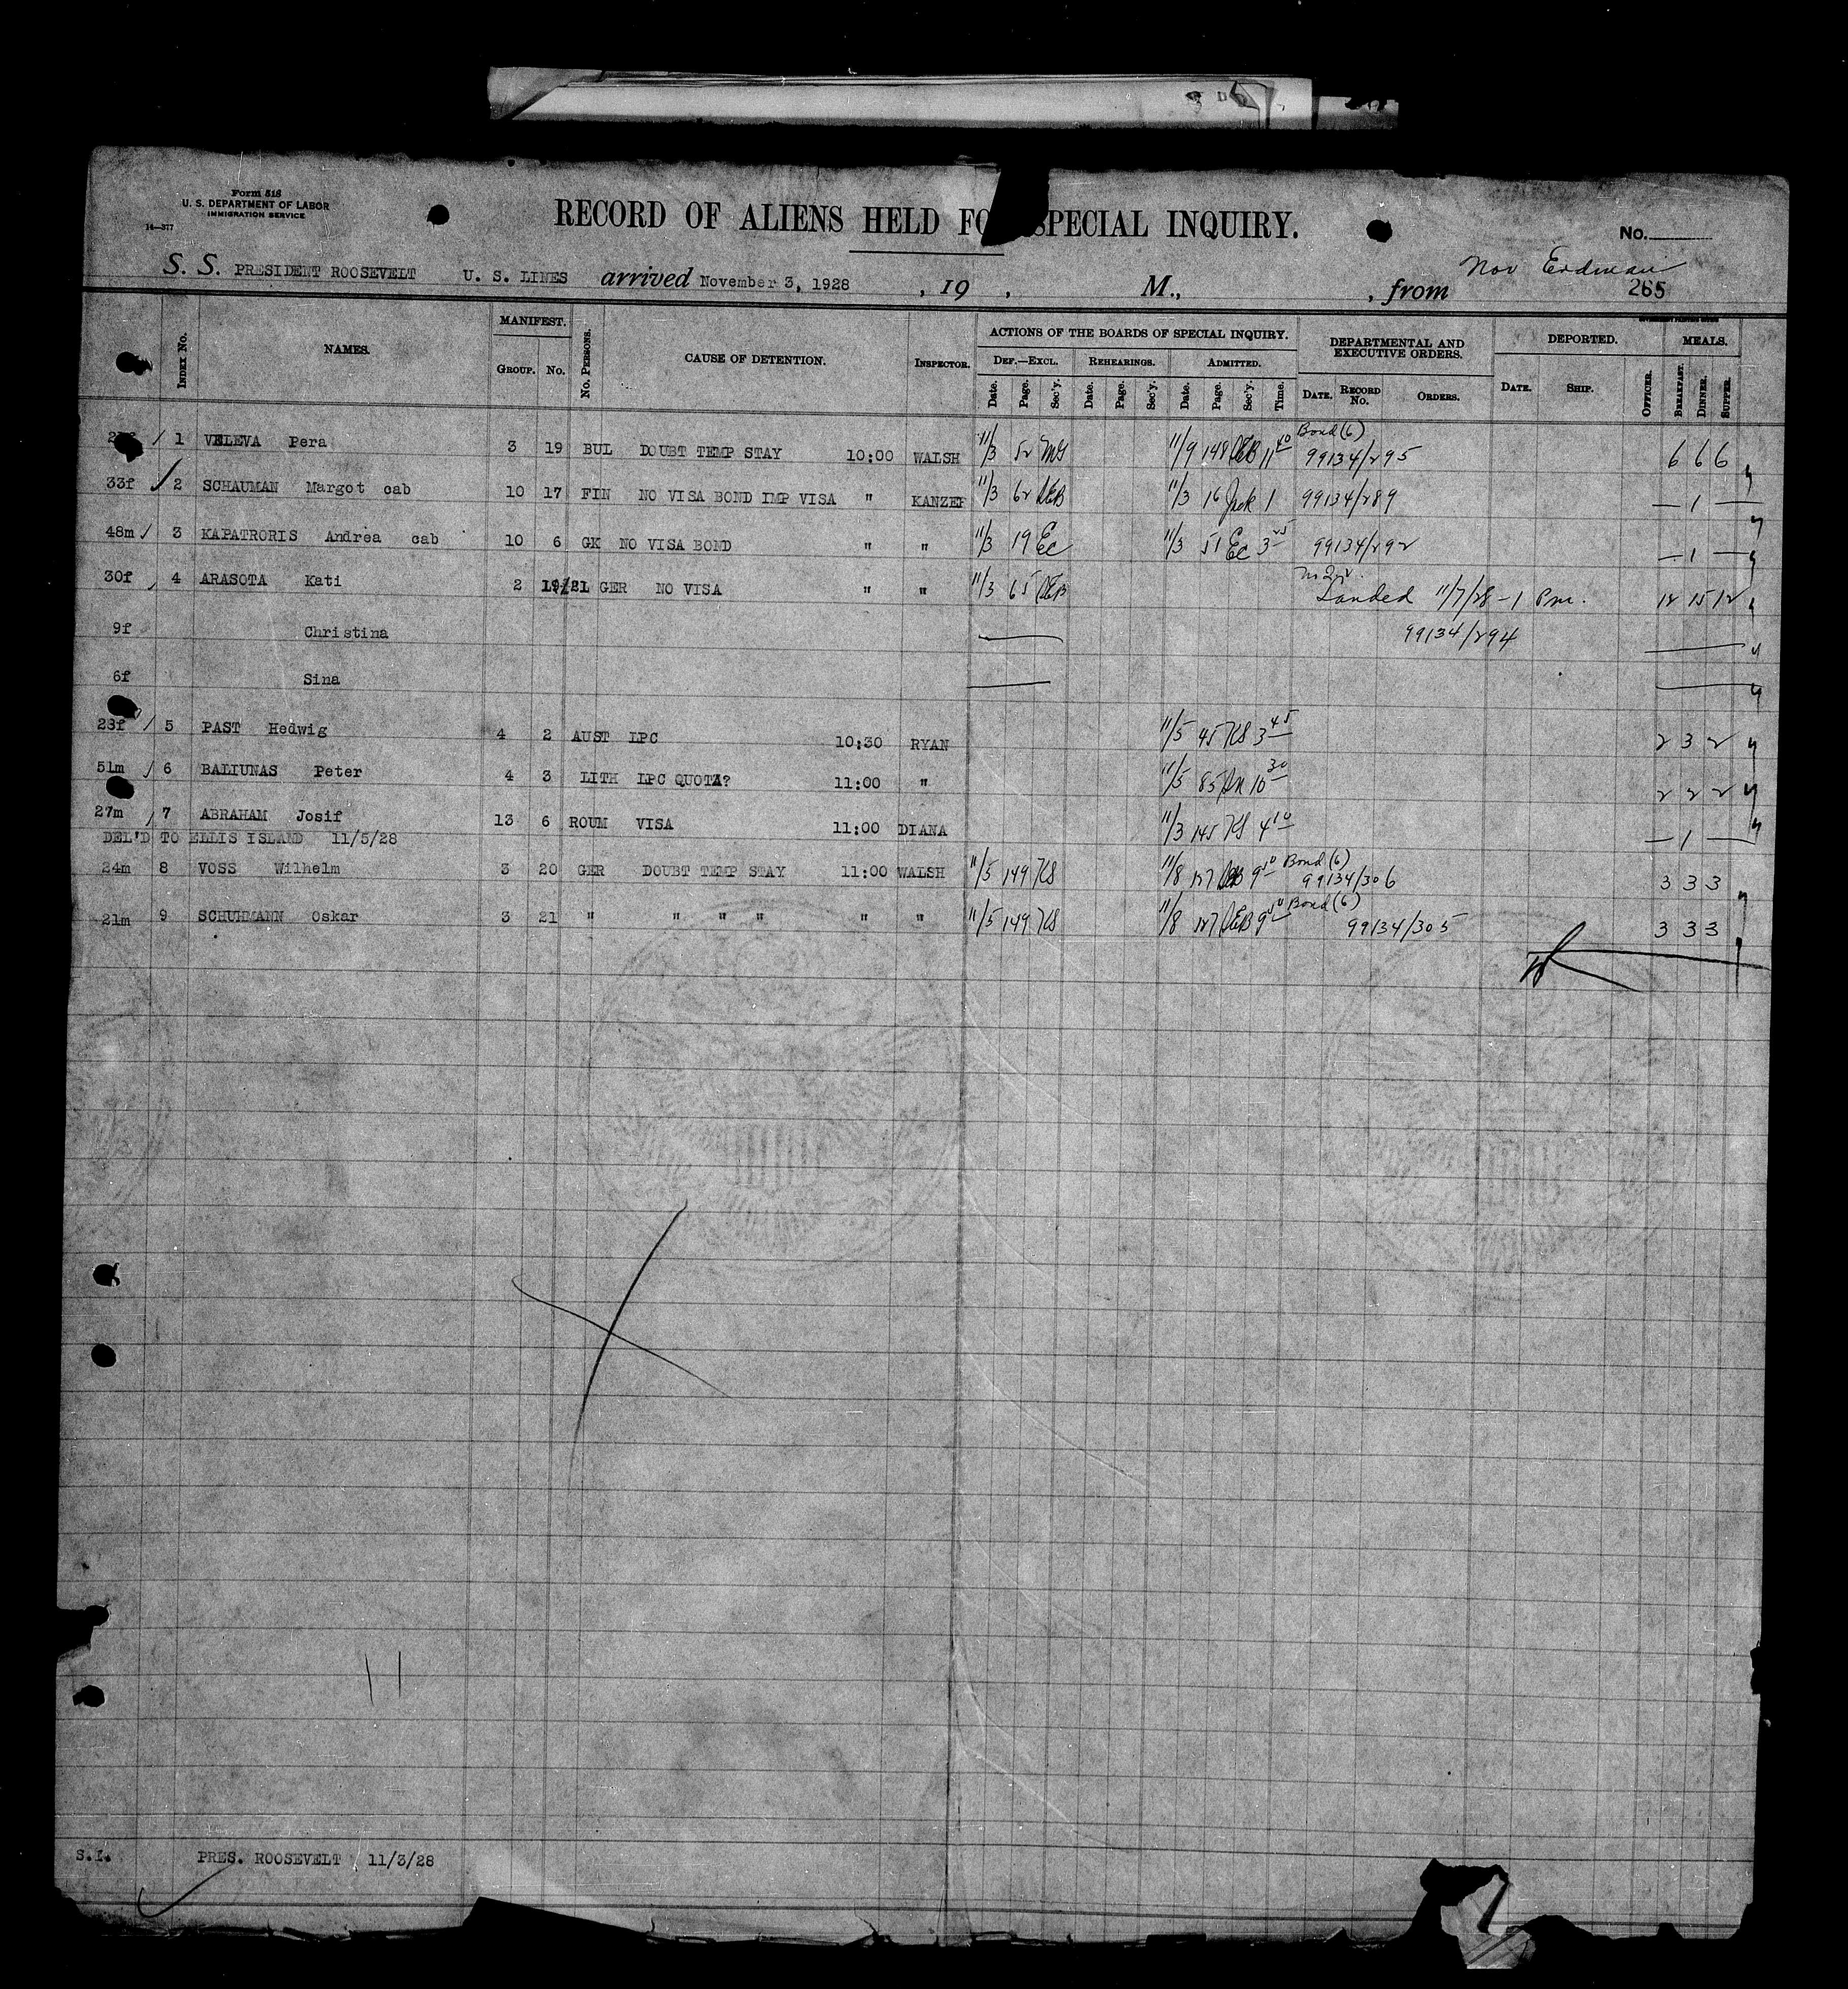 Form 518
U. S. DEPARTMENT OF LABOR
IMMIGRATION SERVICE
14—377
RECORD OF ALIENS HELD FO SPECIAL INQUIRY.
No.
S. S. PRESIDENT ROOSEVELT U. S. LINES arrived November 3, 1928 , 19 , M., , from
265
INDEX NO. NAMES. MANIFEST. GROUP. NO. NO. PERSONS. CAUSE OF DETENTION. INSPECTOR. ACTIONS OF THE BOARDS OF SPECIAL INQUIRY. DEF.—EXCL. REHEARINGS. ADMITTED. DEPARTMENTAL AND EXECUTIVE ORDERS. DEPORTED. MEALS.
Date. Page. Sec'y. Date. Page. Sec'y. Date. Page. Sec'y. Time. DATE. RECORD NO. ORDERS. DATE. SHIP. OFFICER. BREAKFAST. DINNER. SUPPER.
Bond (6)
1 VELEVA Pera 3 19 BUL DOUBT TEMP STAY 10:00 WALSH 11/3 52 11/9 148 DEB 11 40 99134/295 6 6 6
33f 2 SCHAUMAN Margot cab 10 17 FIN NO VISA BOND IMP VISA " KANZER 11/3 62 DEB 11/3 16 1 99134/289 — 1 —
48m 3 KAPATRORIS Andrea cab 10 6 GK NO VISA BOND " " 11/3 19 EC 11/3 51 EC 3 25 99134/292 — 1 —
30f 4 ARASOTA Kati 2 19/21 GER NO VISA " " 11/3 65 DEB Landed 11/7/28 - 1 Pm. 12 15 12
9f Christina 99134/294
6f Sina
23f 5 PAST Hedwig 4 2 AUST LPC 10:30 RYAN 11/5 45 KS 3 45 2 3 2
51m 6 BALIUNAS Peter 4 3 LITH LPC QUOTA? 11:00 " 11/5 85 10 30 2 2 2
27m 7 ABRAHAM Josif 13 6 ROUM VISA 11:00 DIANA 11/3 145 KS 4 10 — 1 —
DEL'D TO ELLIS ISLAND 11/5/28
24m 8 VOSS Wilhelm 3 20 GER DOUBT TEMP STAY 11:00 WALSH 11/5 149 KS 11/8 127 DEB 9 50 Bond (6) 99134/306 3 3 3
21m 9 SCHUHMANN Oskar 3 21 " " " " " " 11/5 149 KS 11/8 127 DEB 9 50 Bond (6) 99134/305 3 3 3
S.I. PRES. ROOSEVELT 11/3/28